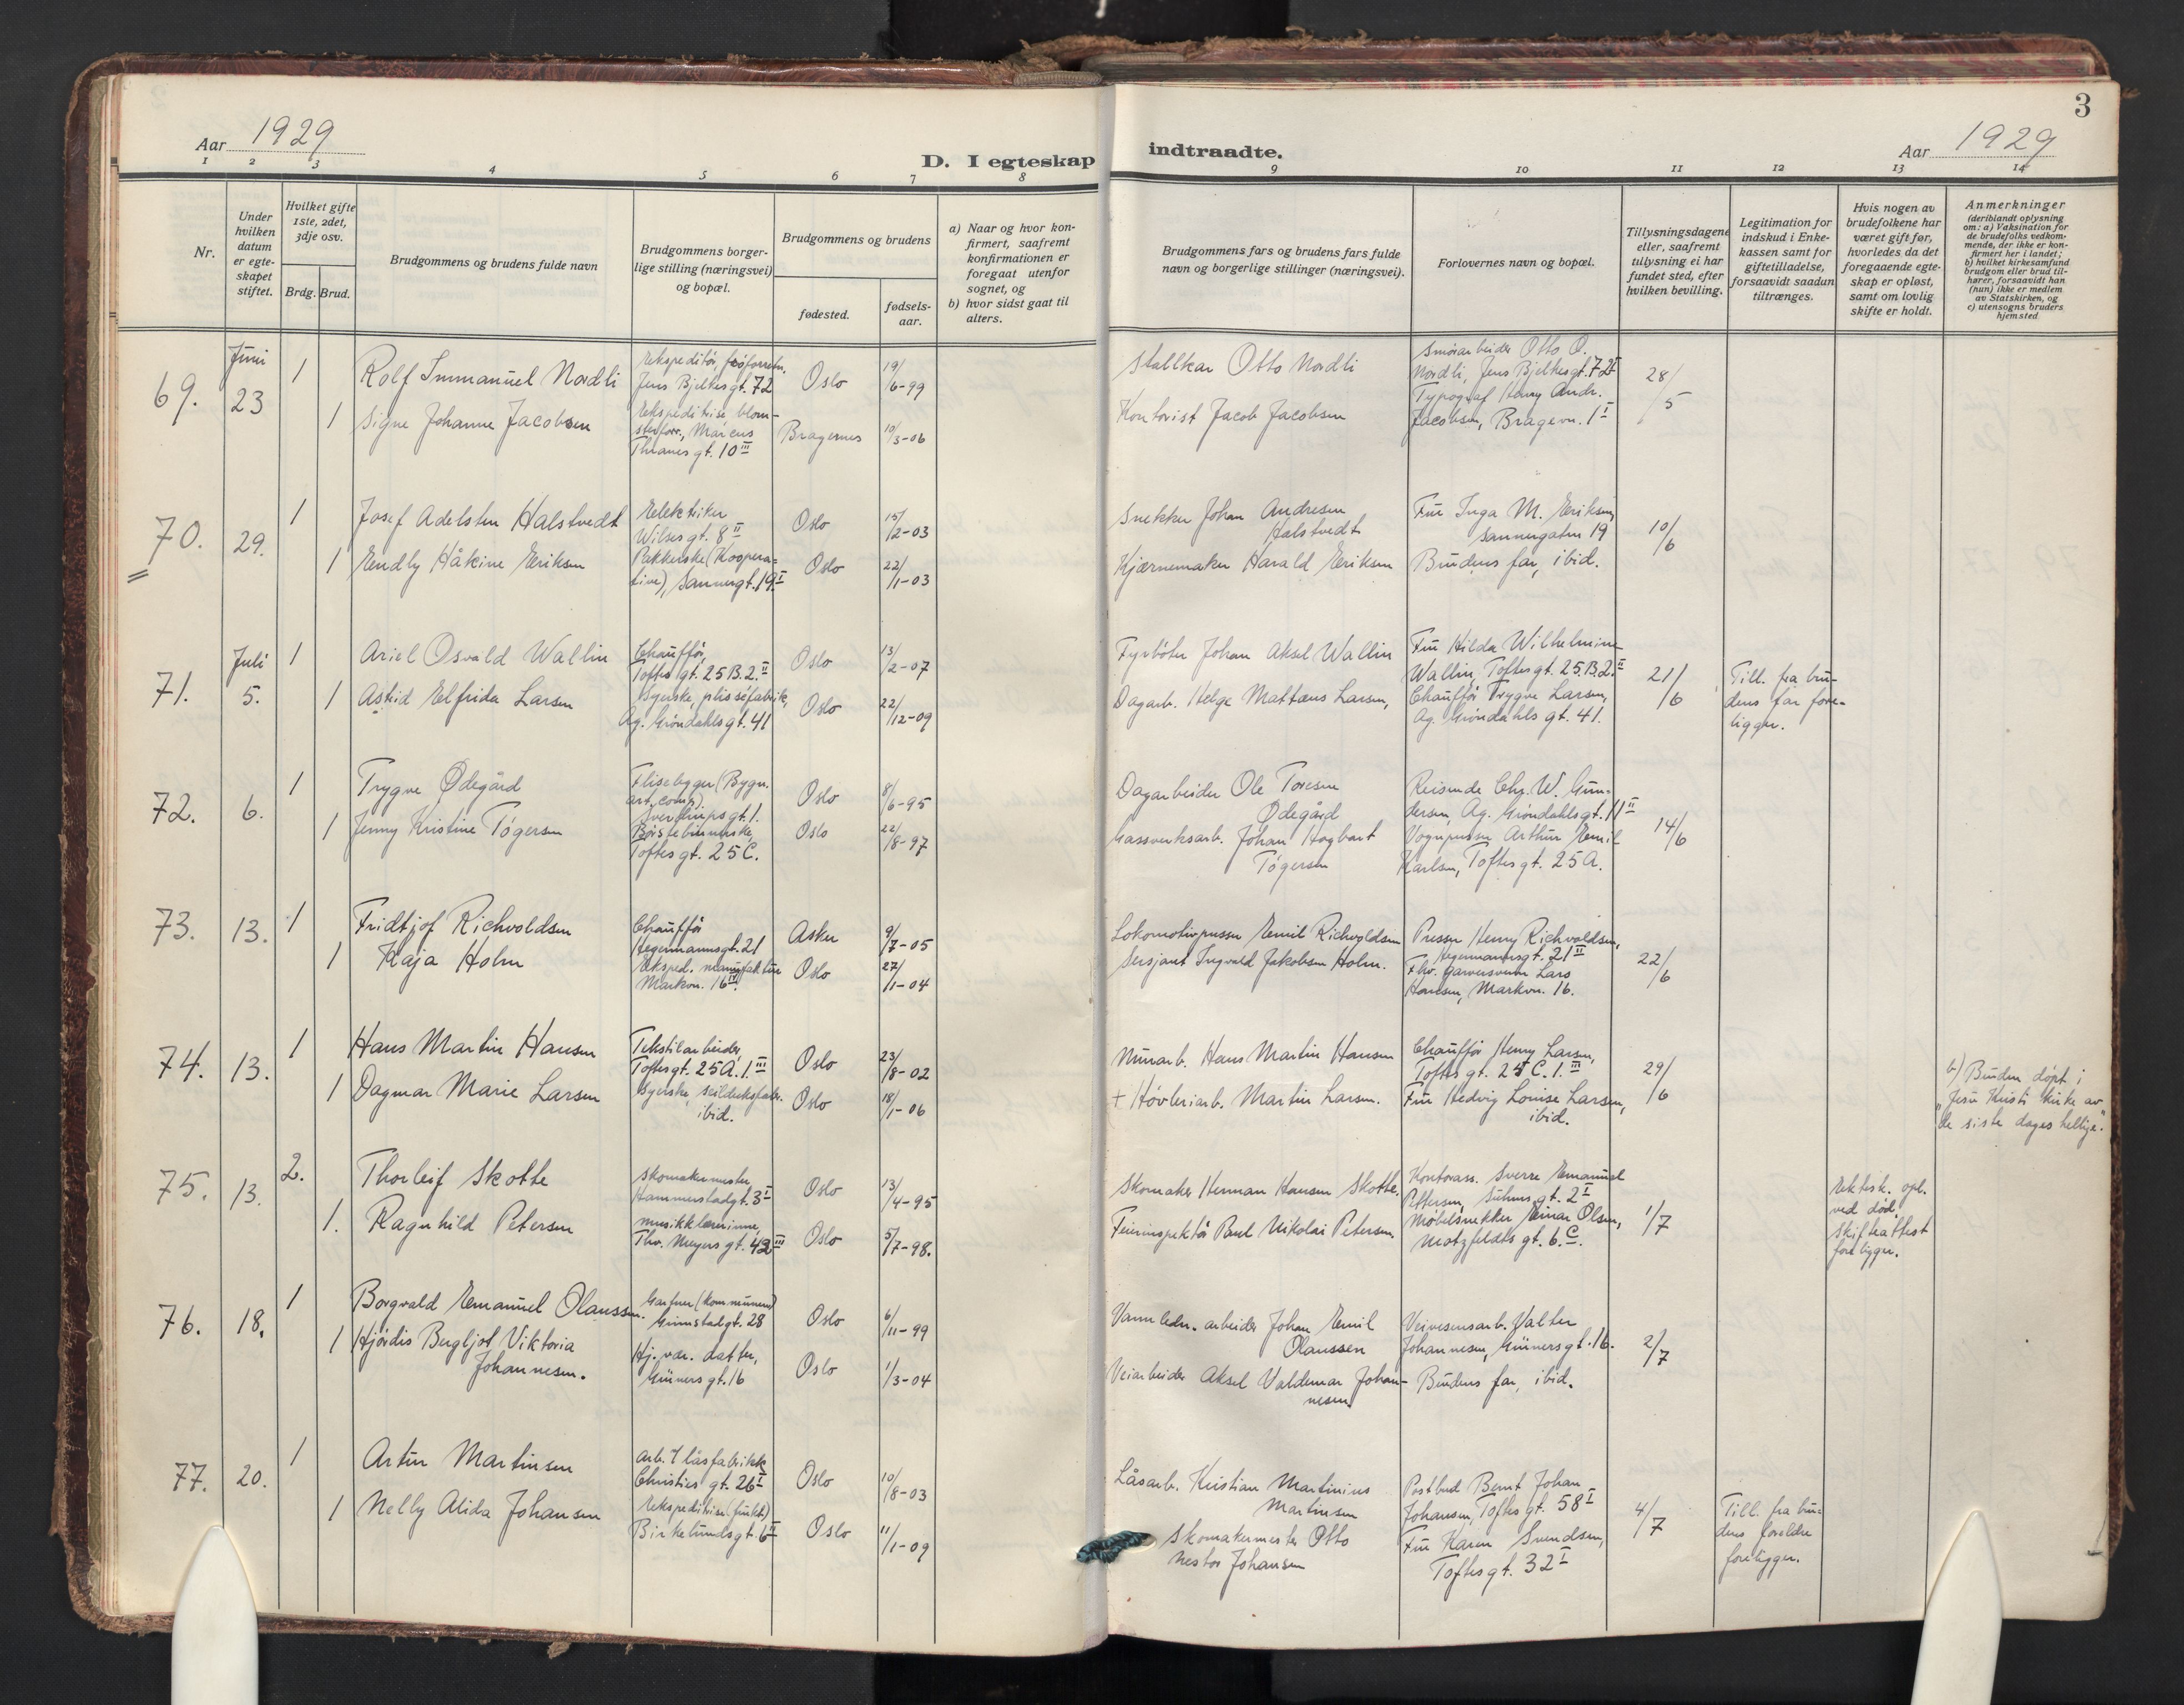 3
Aar 1929
D. I egteskap
indtraadte.
Aar 1929
1 2 3 4 5 6 7 8
9 10 11 12 13 14
Nr.
Under hvilken datum er egteskapet stiftet.
Hvilket gifte 1ste, 2det, 3dje osv.
Brdg. Brud.
Brudgommens og brudens fulde navn
Brudgommens borgerlige stilling (næringsvei) og bopæl.
Brudgommens og brudens
fødested.
fødselsaar.
a) Naar og hvor konfirmert, saafremt konfirmationen er foregaat utenfor sognet, og
b) hvor sidst gaat til alters.
Brudgommens fars og brudens fars fulde navn og borgerlige stillinger (næringsvei).
Forlovernes navn og bopæl.
Tillysningsdagene eller, saafremt tillysning ei har fundet sted, efter hvilken bevilling.
Legitimation for indskud i Enkekassen samt for giftetilladelse, forsaavidt saadan tiltrænges.
Hvis nogen av brudefolkene har været gift før, hvorledes da det foregaaende egteskap er opløst, samt om lovlig skifte er holdt.
Anmerkninger
(deriblandt oplysning om: a) Vaksination for de brudefolks vedkommende, der ikke er konfirmert her i landet; b) hvilket kirkesamfund brudgom eller brud tilhører, forsaavidt han (hun) ikke er medlem av Statskirken, og c) utensogns bruders hjemsted
69. Juni 23
1 Rolf Immanuel Nordli
Ekspeditør, frøforretn.
Jens Bjelkesgt. 72
Oslo 19/6-99
1 Signe Johanne Jacobsen
Ekspeditrise blomsterforr., Marcus
Thranes gt. 10 III
Bragernes 10/3-06
Stallkar Otto Nordli
Kontorist Jacob Jacobsen
Smørarbeider Otto O.
Nordli, Jens Bjelkesgt. 72 I
Typograf Henry Andr.
Jacobsen, Bragevn. 1 I
28/5
70. 29.
1 Josef Adelsten Halstvedt
Elektriker
Wilsesgt. 8 II
Oslo 15/2-03
1 Endly Håkine Eriksen
Pakkerske (Kooperative), Sannergt. 19 I
Oslo 22/1-03
Snekker Johan Andresen
Halstvedt
Kjærnemaker Harald Eriksen
Fru Inga M. Eriksen,
Sannergaten 19
Brudens far, ibid.
10/6
71. Juli 5.
1 Ariel Osvald Wallin
Chauffør,
Toftesgt. 25 B. 2. II
Oslo 13/2-07
1 Astrid Elfrida Larsen
Syerske, plisséfabrik,
Ag. Grøndahlsgt. 41
Oslo 22/12-09
Fyrbøter Johan Aksel Wallin
Dagarb. Helge Mattæus Larsen,
Fru Hilda Wilhelmine
Wallin, Toftesgt. 25 B. 2. II
Chauffør Trygve Larsen,
Ag. Grøndahls gt. 41.
21/6
Till. fra brudens far foreligger.
72. 6.
1 Trygve Ødegård
Flisebygger (Bygn.
art. comp.).
Sverdrupsgt. 1.
Oslo 8/6-95
1 Jenny Kristine Tøgersen
Børstebinnerske,
Toftesgt. 25 C.
Oslo 22/8-97
Dagarbeider Ole Toresen
Ødegård
Gassverksarb. Johan Hagbart
Tøgersen
Reisende Chr. W. Gundersen, Ag. Grøndahlsgt. 11 II
Vognpusser Arthur Emil
Karlsen, Toftesgt. 25 A.
14/6
73. 13.
1 Fridtjof Richvoldsen
Chauffør
Hegermannsgt. 21
Asker 9/7-05
1 Kaja Holm
Eksped. manufaktur
Markvn. 16 III.
Oslo 27/1-04
Lokomotivpusser Emil Richvoldsen
Sersjant Ingvald Jakobsen Holm.
Presser Henry Richvoldsen,
Hegermannsgt. 21 II
Fhv. garversvenn Lars
Hansen, Markvn. 16.
22/6
74. 13.
1 Hans Martin Hansen
Tekstilarbeider,
Toftesgt. 25 A. 1. III
Oslo 23/8-02
1 Dagmar Marie Larsen
Syerske, seildukfabr.
ibid.
Oslo 18/1-06
Murarb. Hans Martin Hansen
+ Høvleriarb. Martin Larsen.
Chauffør Henry Larsen,
Toftes gt. 25 C. 1. III
Fru Hedvig Louise Larsen,
ibid.
29/6
b) Bruden døpt i
"Jesu Kristi kirke av
de siste dages hellige".
75. 13.
2. Thorleif Skotte
Skomakermester
Hammerstadgt. 3 I
Oslo 13/4-95
1. Ragnhild Petersen
musikklærerinne,
Thv. Meyers gt. 42 III
Oslo 5/7-98.
Skomaker Herman Hansen Skotte.
Feierinspektør Paul Nikolai Petersen.
Kontorass. Sverre Emanuel
Pettersen, Suhmsgt. 2 I
Møbelsnekker Einar Olsen,
Motzfeldts gt. 6. C.
1/7
Ektesk. opl.
ved død.
Skifteattest
foreligger.
76. 18.
1 Borgvald Emanuel Olaussen.
Gartner (kommunen)
Grimstadgt. 28
Oslo 6/11-99
1 Hjørdis Bergljot Viktoria
Johannesen.
Hj. vær. datter,
Grünersgt. 16
Oslo 1/3-04
Vannledn. arbeider Johan Emil
Olaussen
Veiarbeider Aksel Valdemar Johannesen.
Veivesensarb. Valter
Johannesen, Grünersgt. 16.
Brudens far, ibid.
2/7
77. 20.
1 Artur Martinsen
Arb. i låsfabrikk
Christies gt. 26 I
Oslo 10/8-03
1 Nelly Alida Johansen
Ekspeditrise (frukt)
Birkelundsgt. 6 III
Oslo 11/1-09
Låsarb. Kristian Martinius
Martinsen
Skomakermester Otto
Nestor Johansen
Postbud Bernt Johan
Johansen, Toftes gt. 58 I
Fru Karen Svendsen,
Toftesgt. 32 I
4/7
Till. fra brudens foreldre
foreligger.